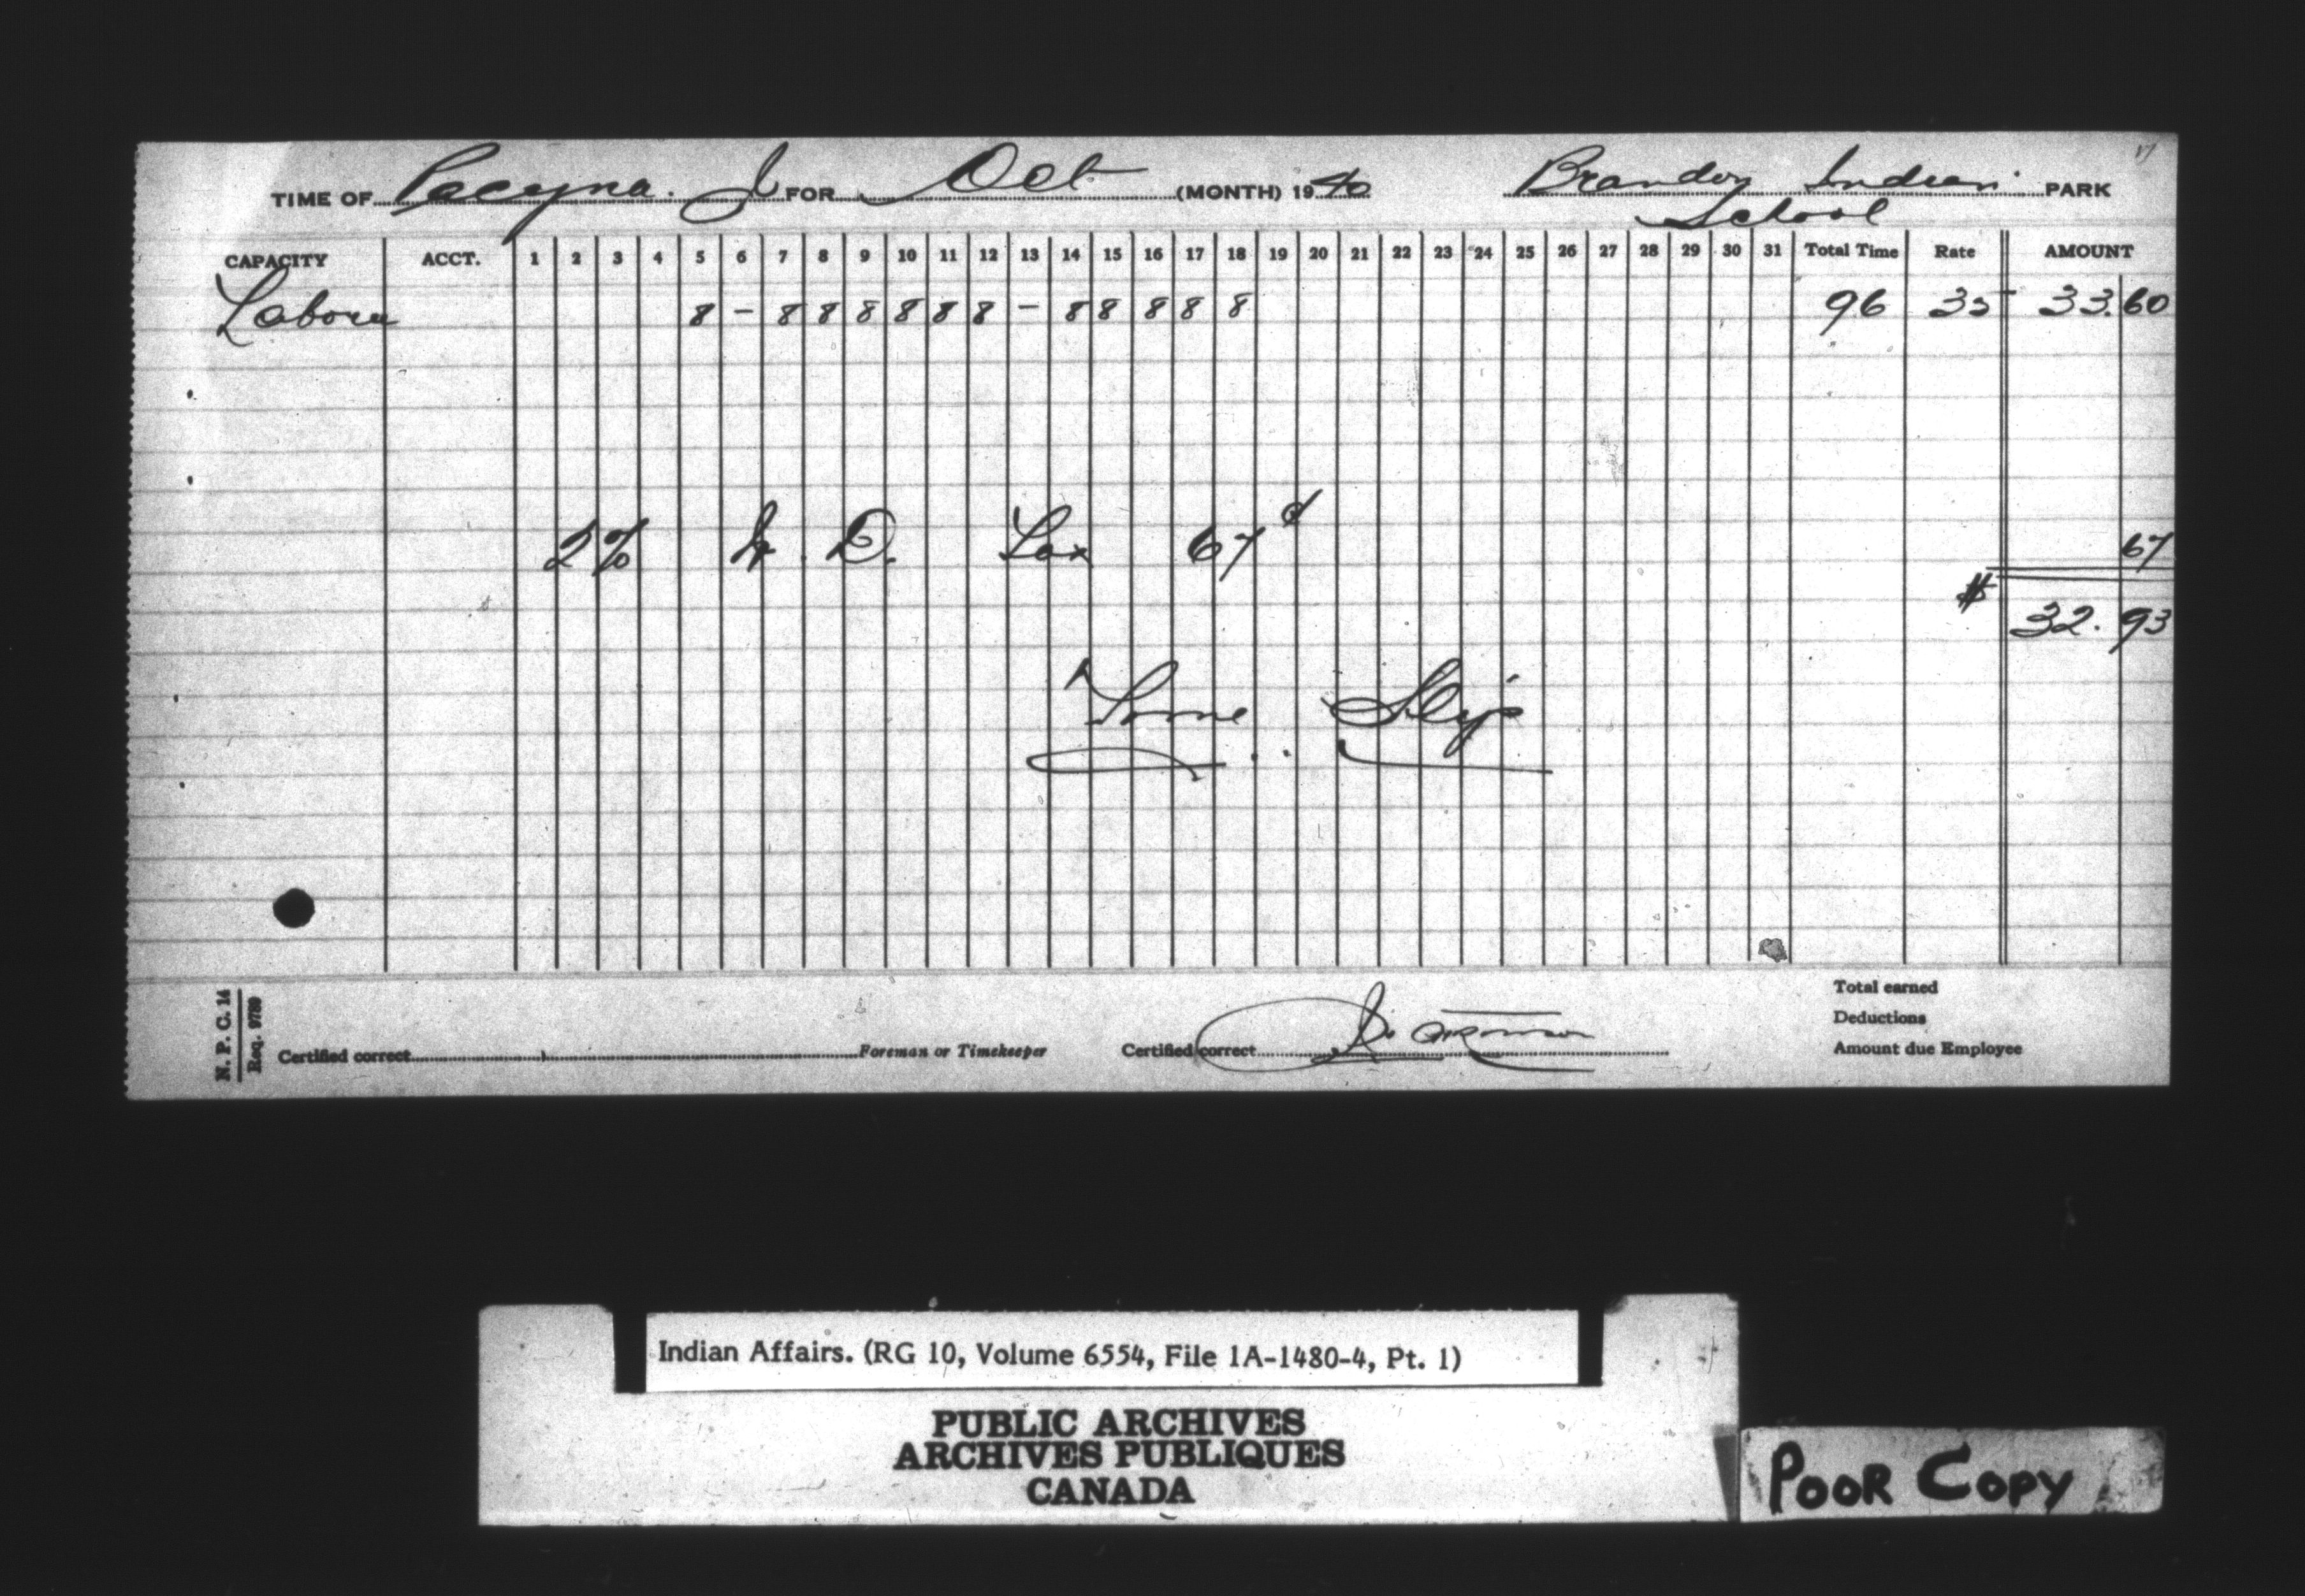 TIME OF Pacyna. J FOR Oct (MONTH) 1940 Brandon Indian PARK
School
CAPACITY ACCT. 1 2 3 4 5 6 7 8 9 10 11 12 13 14 15 16 17 18 19 20 21 22 23 24 25 26 27 28 29 30 31 Total Time Rate AMOUNT
Laborer 8 - 8 8 8 8 8 8 - 8 8 8 8 8 96 35 33.60
2% N. D. Tax 67¢ 67
$ 32.93
Time Slip
N. P. C. 14
Req. 9789
Total earned
Deductions
Certified correct Foreman or Timekeeper Certified correct Amount due Employee
Indian Affairs. (RG 10, Volume 6554, File 1A-1480-4, Pt. 1)
PUBLIC ARCHIVES
ARCHIVES PUBLIQUES
CANADA
POOR COPY